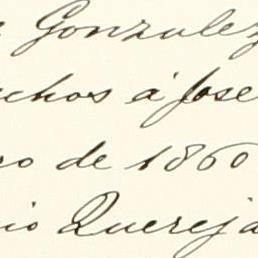 Gonzulez
chos á Jose
ro de 1860
io Quereja